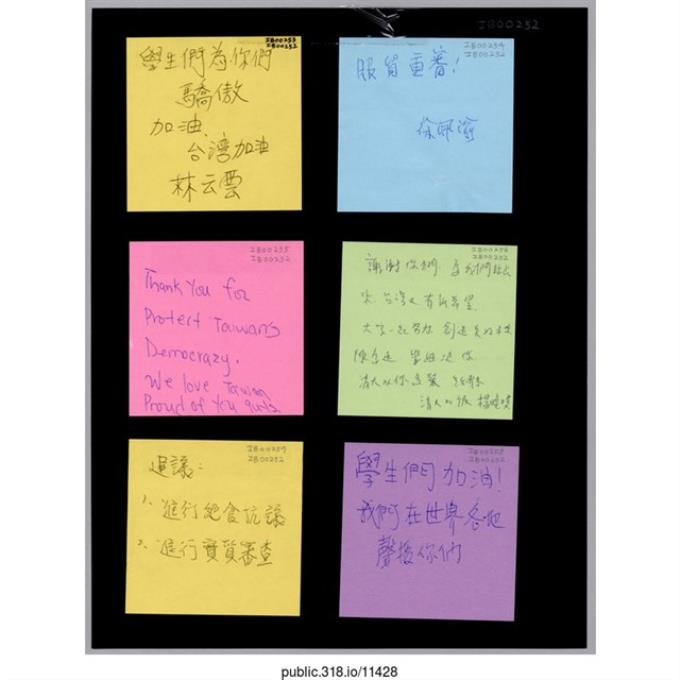 IB00252
IB00253
IB00252
學生們為你們
驕傲
加油
台灣加油
林云雲
IB00254
IB00252
服貿重審!
徐
IB00255
IB00252
Thank You for
Protect Taiwan's
Democrazy.
We love Taiwan
Proud of You guys
IB00256
IB00252
謝謝你們
台灣人有新希望
大家一起努力 創造美好未來
IB00257
IB00252
建議:
1. 進行絕食抗議
2. 進行實質審查
IB00258
IB00252
學生們加油!
我們在世界各地
聲援你們
public.318.io/11428